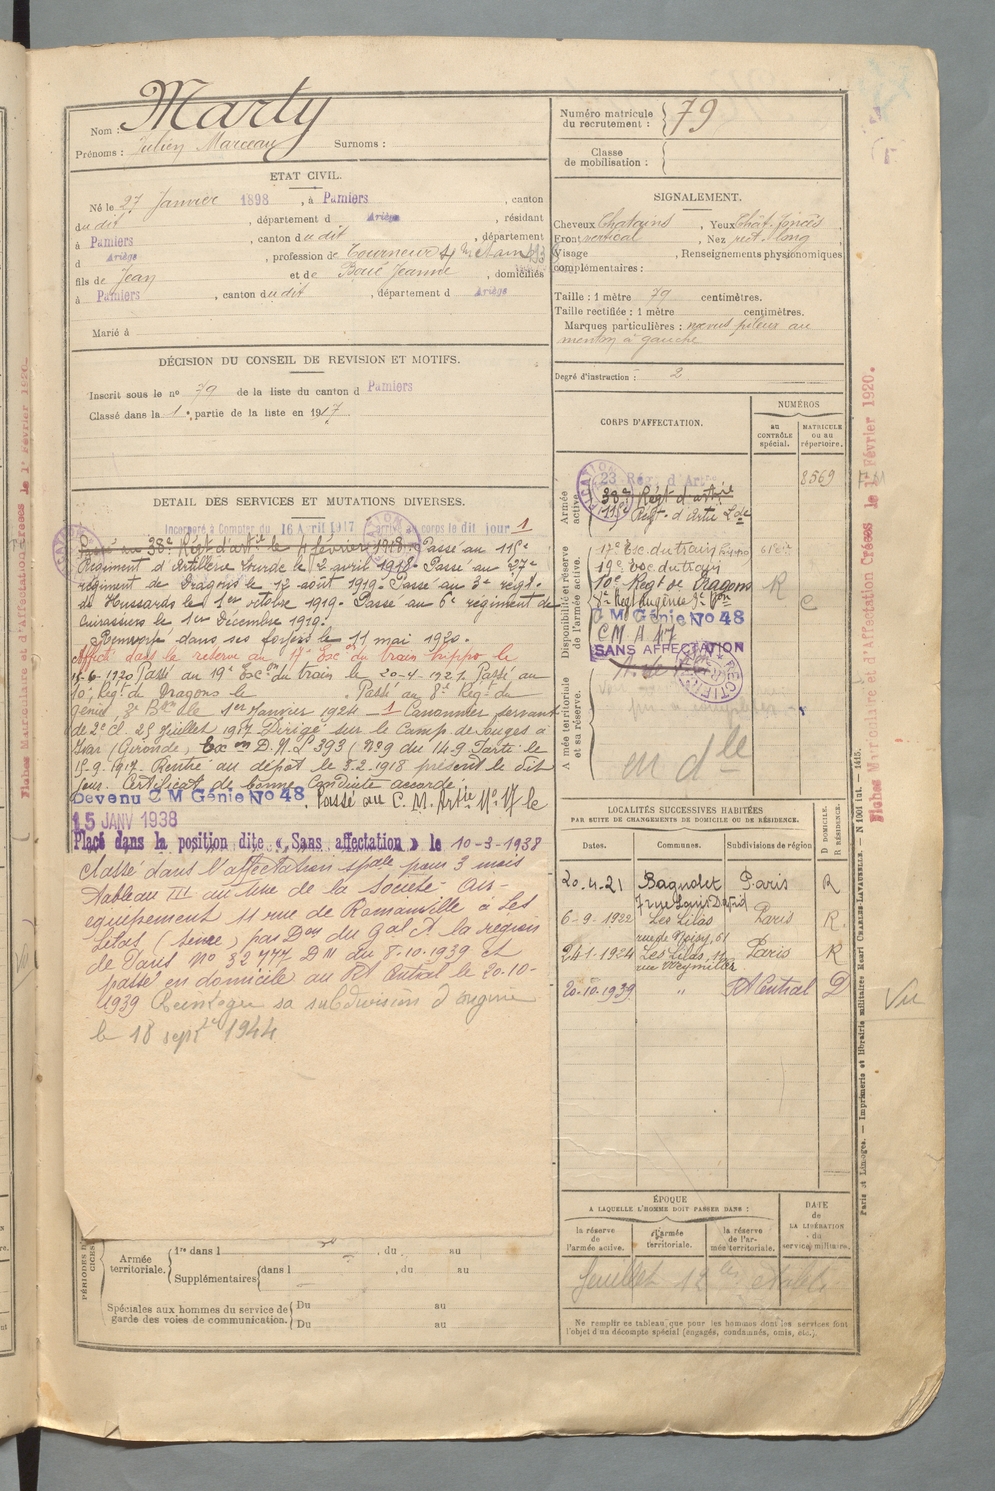 Nom : Marty
Prénoms : Julien Marceau Surnoms :
ETAT CIVIL.
Né le 27 Janvier 1898, à Pamiers, canton
dudit, département d Ariège, résidant
à Pamiers, canton dudit, département
d Ariège, profession de Tourneur
fils de Jean et de Boué Jeanne, domiciliés
à Pamiers, canton dudit, département d Ariège
Marié à
DÉCISION DU CONSEIL DE REVISION ET MOTIFS.
Inscrit sous le no 79 de la liste du canton d Pamiers
Classé dans la 1e partie de la liste en 1917.
DETAIL DES SERVICES ET MUTATIONS DIVERSES.
Incorporé à Compter du 16 Avril 1917 arrivé au corps le dit jour 1
Passé au 38e Régt d'artie le 4 février 1918. Passé au 115e
Régiment d'Artillerie Lourde le 12 avril 1918. Passé au 27e
régiment de Dragons le 12 août 1919. Passé au 3e régt
de Hussards le 1er octobre 1919. Passé au 6e régiment de
Cuirassiers le 1er Décembre 1919.
Renvoyé dans ses foyers le 11 mai 1920.
Affecté dans la réserve au 17e Esc on du train hippo le
15-6-1920 Passé au 19e Esc on du train le 20-4-1921 Passé au
10e Régt de Dragons le . Passé au 8e Régt du
Génie, 3e Bon le 1er Janvier 1924 1 Canonnier servant
de 2e cl. 25 Juillet 1917 Dirigé sur le Camp de Souges à
Isar (Gironde) Ex on D.M.L 393 / 729 du 14-9 Parti le
15-9-1917. Rentré au dépôt le 3-2-1918 présent le dit
jour. Certificat de bonne Conduite accordé.
Devenu C M Génie No 48. Passé au C. M. Artie No 47 le
15 JANV 1938
Placé dans la position dite « Sans affectation » le 10-3-1938
Classé dans l'affectation spale pour 3 mois
tableau III au titre de la Société Air-
equipement 11 rue de Romainville à Les
Lilas (Seine) par Don du Gal Ct la région
de Paris No 32477 D III du 8-10-1939 et
passé en domicile au Rt Central le 20-10-
1939 sa subdivision d'origine
le 18 septbre 1944
PÉRIODES
Armée territoriale. 1re dans l , du au
Supplémentaires dans l , du au
Spéciales aux hommes du service de garde des voies de communication. Du au
Du au
Numéro matricule du recrutement : 79
Classe de mobilisation :
SIGNALEMENT.
Cheveux Chatains, Yeux Chât. foncés
Front vertical, Nez rect. long
Visage , Renseignements physionomiques
complémentaires :
Taille : 1 mètre 79 centimètres.
Taille rectifiée : 1 mètre centimètres.
Marques particulières : nœvus pileux au
menton à gauche
Degré d'instruction : 2
CORPS D'AFFECTATION.
NUMÉROS
au CONTRÔLE spécial.
MATRICULE ou au répertoire.
Armée active.
23 Rég. d'Artie 8569
38e Régt d'artie
115e Régt d'Artie Lde
Disponibilité et réserve de l'armée active.
17e Esc. du train hippo
19e Esc. du train
10e Régt de Dragons R
8e Régt du génie 3e Bon C
C M Génie No 48
C M A 47
SANS AFFECTATION
RECTIFICATION
Armée territoriale et sa réserve.
en dlle
LOCALITÉS SUCCESSIVES HABITÉES
PAR SUITE DE CHANGEMENTS DE DOMICILE OU DE RÉSIDENCE.
Dates. Communes. Subdivisions de région D DOMICILE. R RÉSIDENCE.
20.4.21 Bagnolet Paris R
7 rue Louis David
6-9-1922 Les Lilas Paris R.
rue de Noisy, 61
24-1-1924 Les Lilas, 11 Paris R
rue Weymiller
20-10-1939 " Rt Central D
ÉPOQUE
A LAQUELLE L'HOMME DOIT PASSER DANS :
la réserve de l'armée active.
l'armée territoriale.
la réserve de l'armée territoriale.
DATE de LA LIBÉRATION du service militaire.
Feuillet
Ne remplir ce tableau que pour les hommes dont les services font
l'objet d'un décompte spécial (engagés, condamnés, omis, etc.)
Fiches Matriculaire et d'Affectation Créées le 1er Février 1920.
Paris et Limoges. — Imprimerie et librairie militaires Henri CHARLES-LAVAUZELLE. — N 1001 int. — 1415.
Vu
Fiches Matriculaire et d'Affectation Créées le 1er Février 1920.